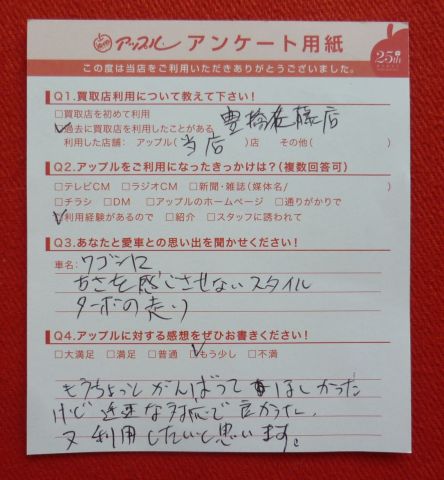 アップル アンケート用紙
25th
この度は当店をご利用いただきありがとうございました。
Q1.買取店利用について教えて下さい！
豊橋佐藤店
□買取店を初めて利用
□過去に買取店を利用したことがある
利用した店舗： アップル(当店)店 その他( )
Q2.アップルをご利用になったきっかけは？(複数回答可)
□テレビCM □ラジオCM □新聞・雑誌(媒体名/ )
□チラシ □DM □アップルのホームページ □通りがかりで
□利用経験があるので □紹介 □スタッフに誘われて
Q3.あなたと愛車との思い出を聞かせてください！
車名：ワゴンR
古さを感じさせないスタイル
ターボの走り
Q4.アップルに対する感想をぜひお書きください！
□大満足 □満足 □普通 □もう少し □不満
もうちょっとがんばってほしかった
けど 迅速な対応で良かった。
又利用したいと思います。